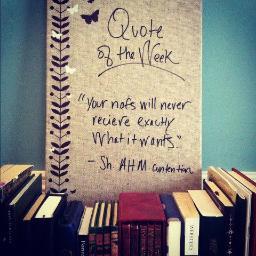 Quote
of the Week
"Your nafs will never
recieve exactly
what it wants."
- Sh AHM contention